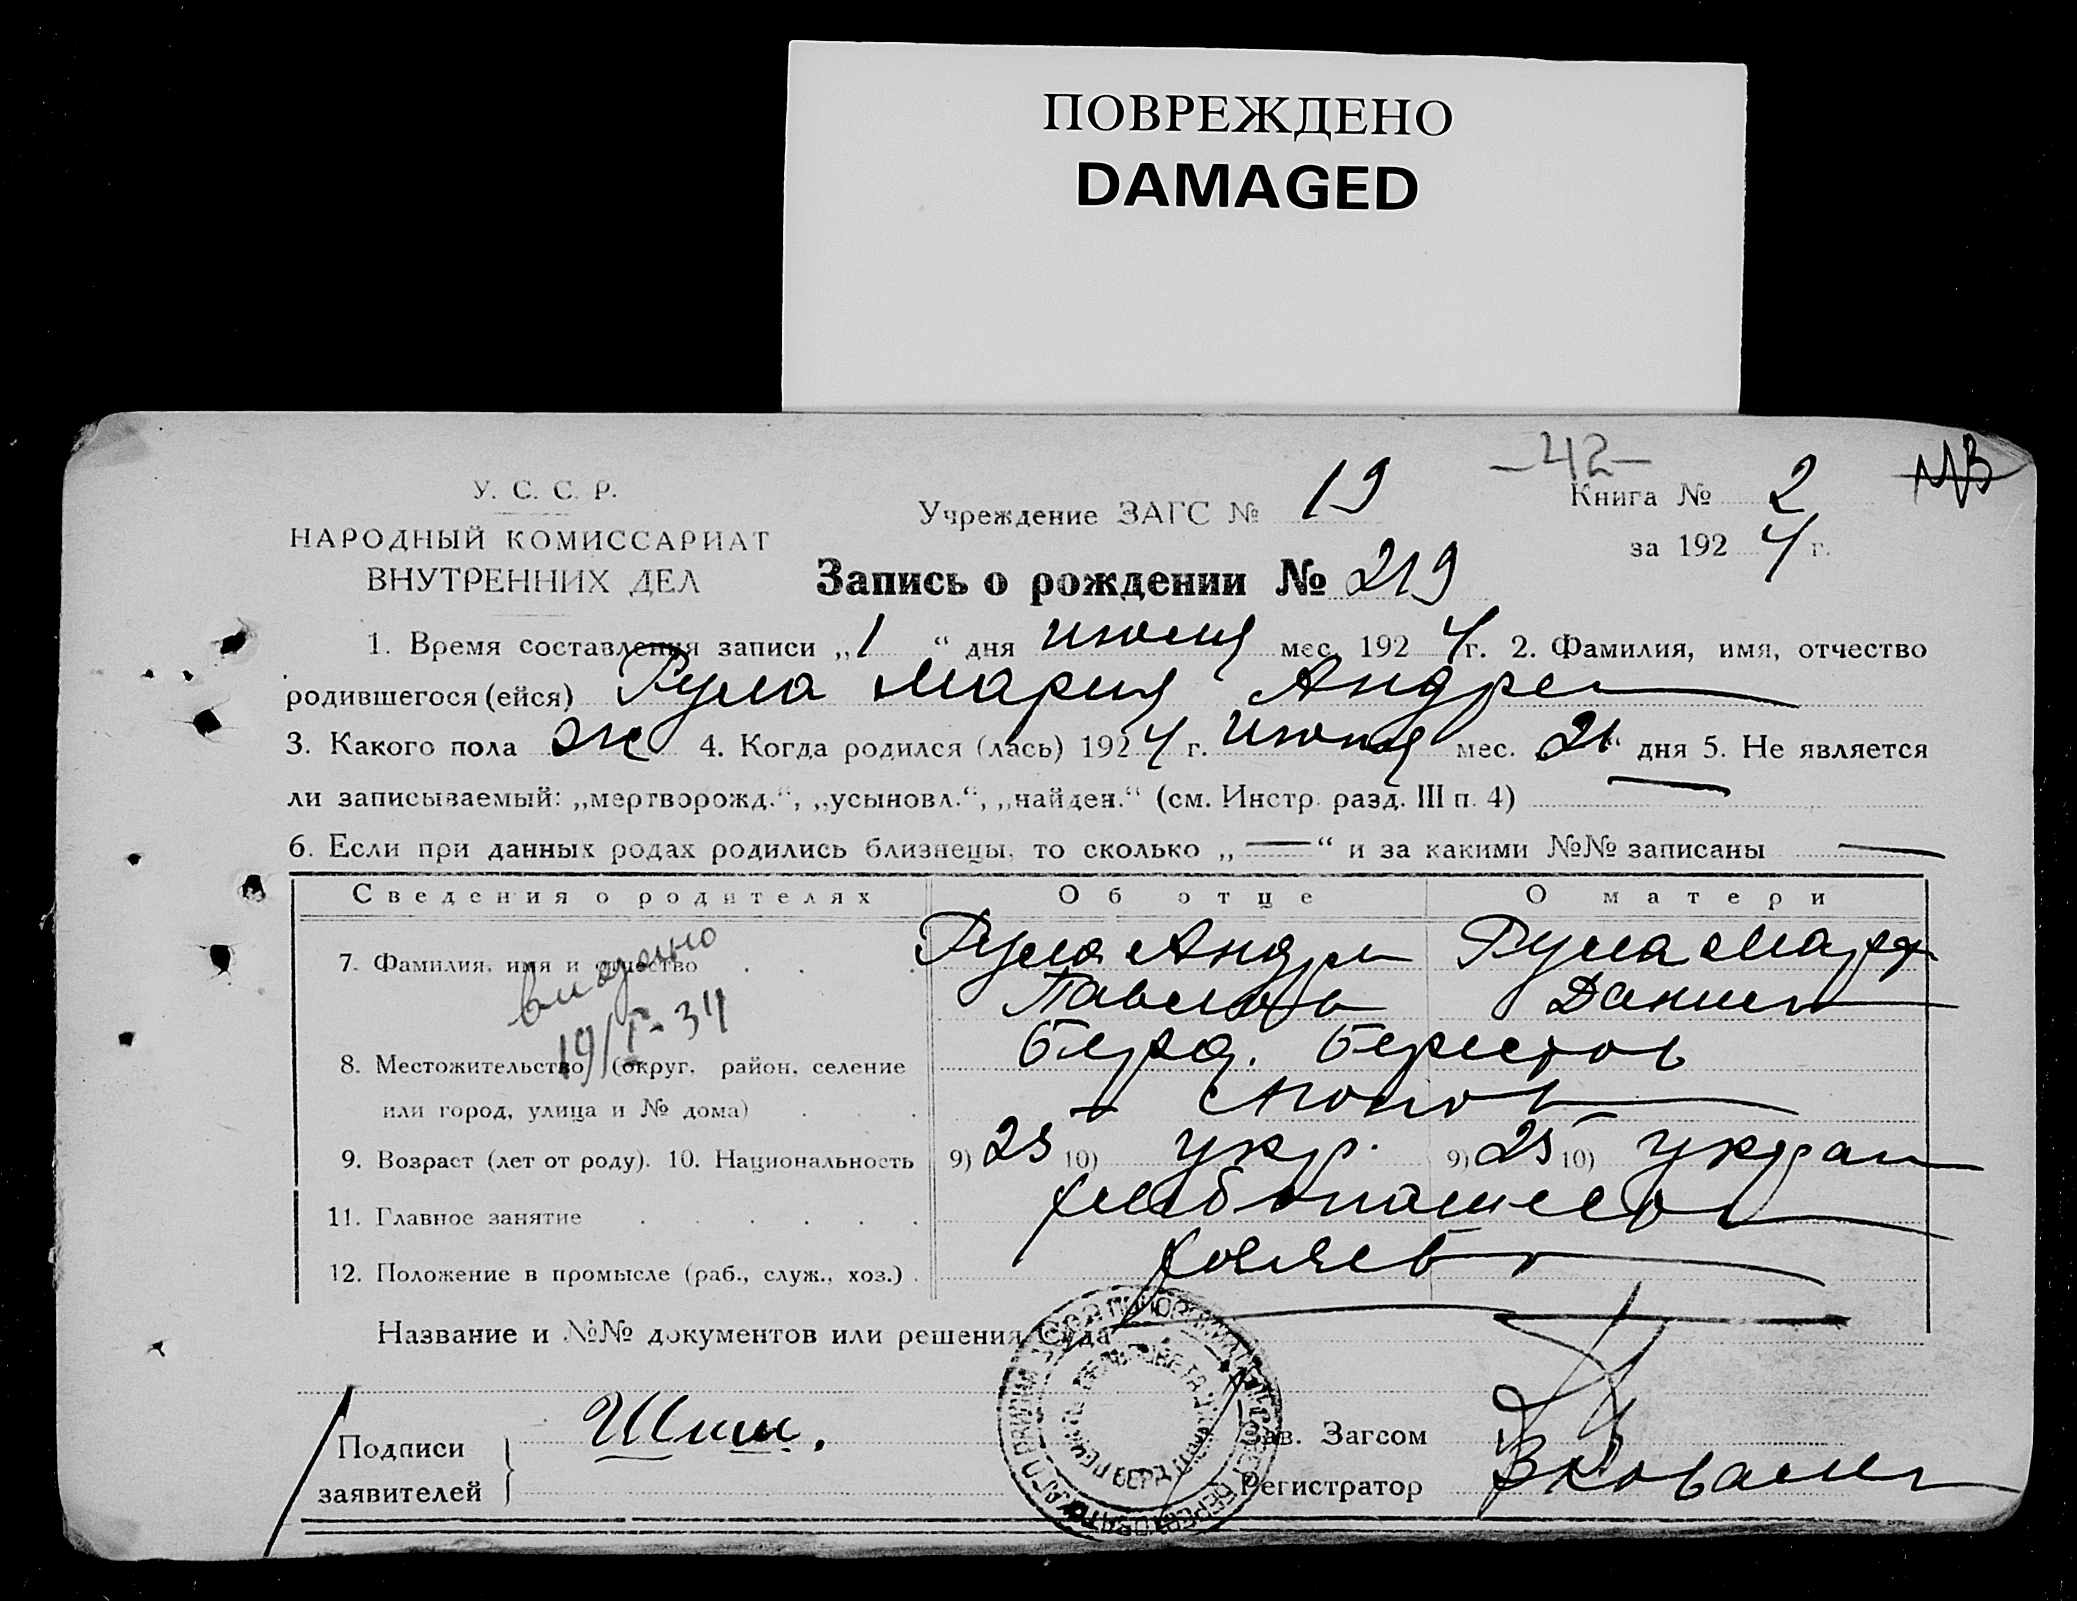 ПОВРЕЖДЕНО
DAMAGED
-42-
У. С. С. Р.
НАРОДНЫЙ КОМИССАРИАТ
ВНУТРЕННИХ ДЕЛ
Учреждение ЗАГС № 19
Книга № 2
за 1924 г.
Запись о рождении № 219
1. Время составления записи „1“ дня июля мес. 1924 г. 2. Фамилия, имя, отчество
родившегося (ейся) Рума Мария Андре
3. Какого пола ж 4. Когда родился (лась) 1924 г. мес. „21“ дня 5. Не является
ли записываемый: „мертворожд.“, „усыновл.“, „найден.“ (см. Инстр. разд. III п. 4) —
6. Если при данных родах родились близнецы, то сколько „—“ и за какими №№ записаны —
Сведения о родителях Об отце О матери
7. Фамилия, имя и отчество . . . Рума Андре Рума Мар
Павлов Данил
выдано
19/I-34
8. Местожительство (округ, район, селение Берд. Берестов
или город, улица и № дома) . . .
9. Возраст (лет от роду). 10. Национальность 9) 25 10) укр. 9) 25 10) украи
11. Главное занятие . . . . . . хлебопашество
12. Положение в промысле (раб., служ., хоз.) . хозяев
Название и №№ документов или решения Суда
Подписи
заявителей
Зав. Загсом
Регистратор